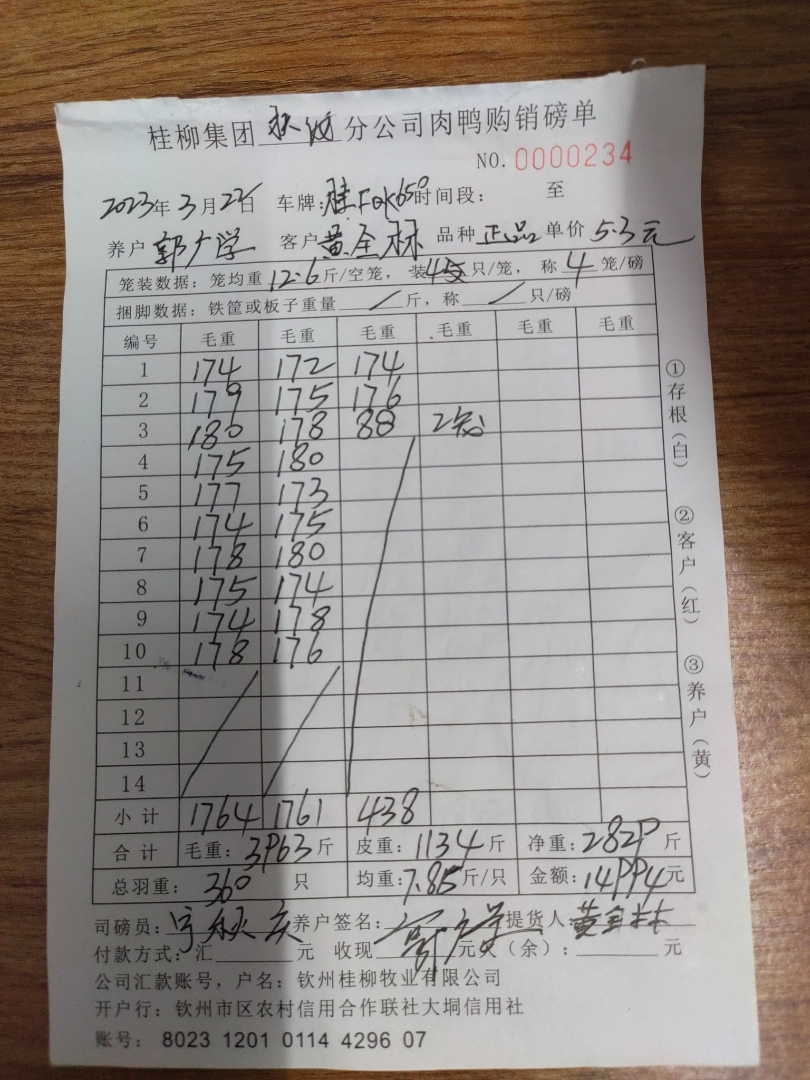 桂柳集团分公司肉鸭购销磅单
NO.0000234
2023年3月22日 车牌:桂FQK650 时间段: 至
养户 郭广学 客户 黄全林 品种 正品 单价 5.3元
笼装数据: 笼均重12.6斤/空笼, 装4只/笼, 称4笼/磅
捆脚数据: 铁筐或板子重量/斤, 称/只/磅
编号 毛重 毛重 毛重 毛重 毛重 毛重
1 174 172 174
2 179 175 176
3 180 178 88 2笼
4 175 180
5 177 173
6 174 175
7 178 180
8 175 174
9 174 178
10 178 176
11
12
13
14
小计 1764 1761 438
合计 毛重: 3963斤 皮重: 1134斤 净重: 2829斤
总羽重: 360只 均重: 7.85斤/只 金额: 14994元
司磅员: 养户签名: 提货人 黄全林
付款方式: 汇 元 收现 元 欠(余): 元
公司汇款账号, 户名: 钦州桂柳牧业有限公司
开户行: 钦州市区农村信用合作联社大垌信用社
账号: 8023 1201 0114 4296 07
①存根(白)
②客户(红)
③养户(黄)